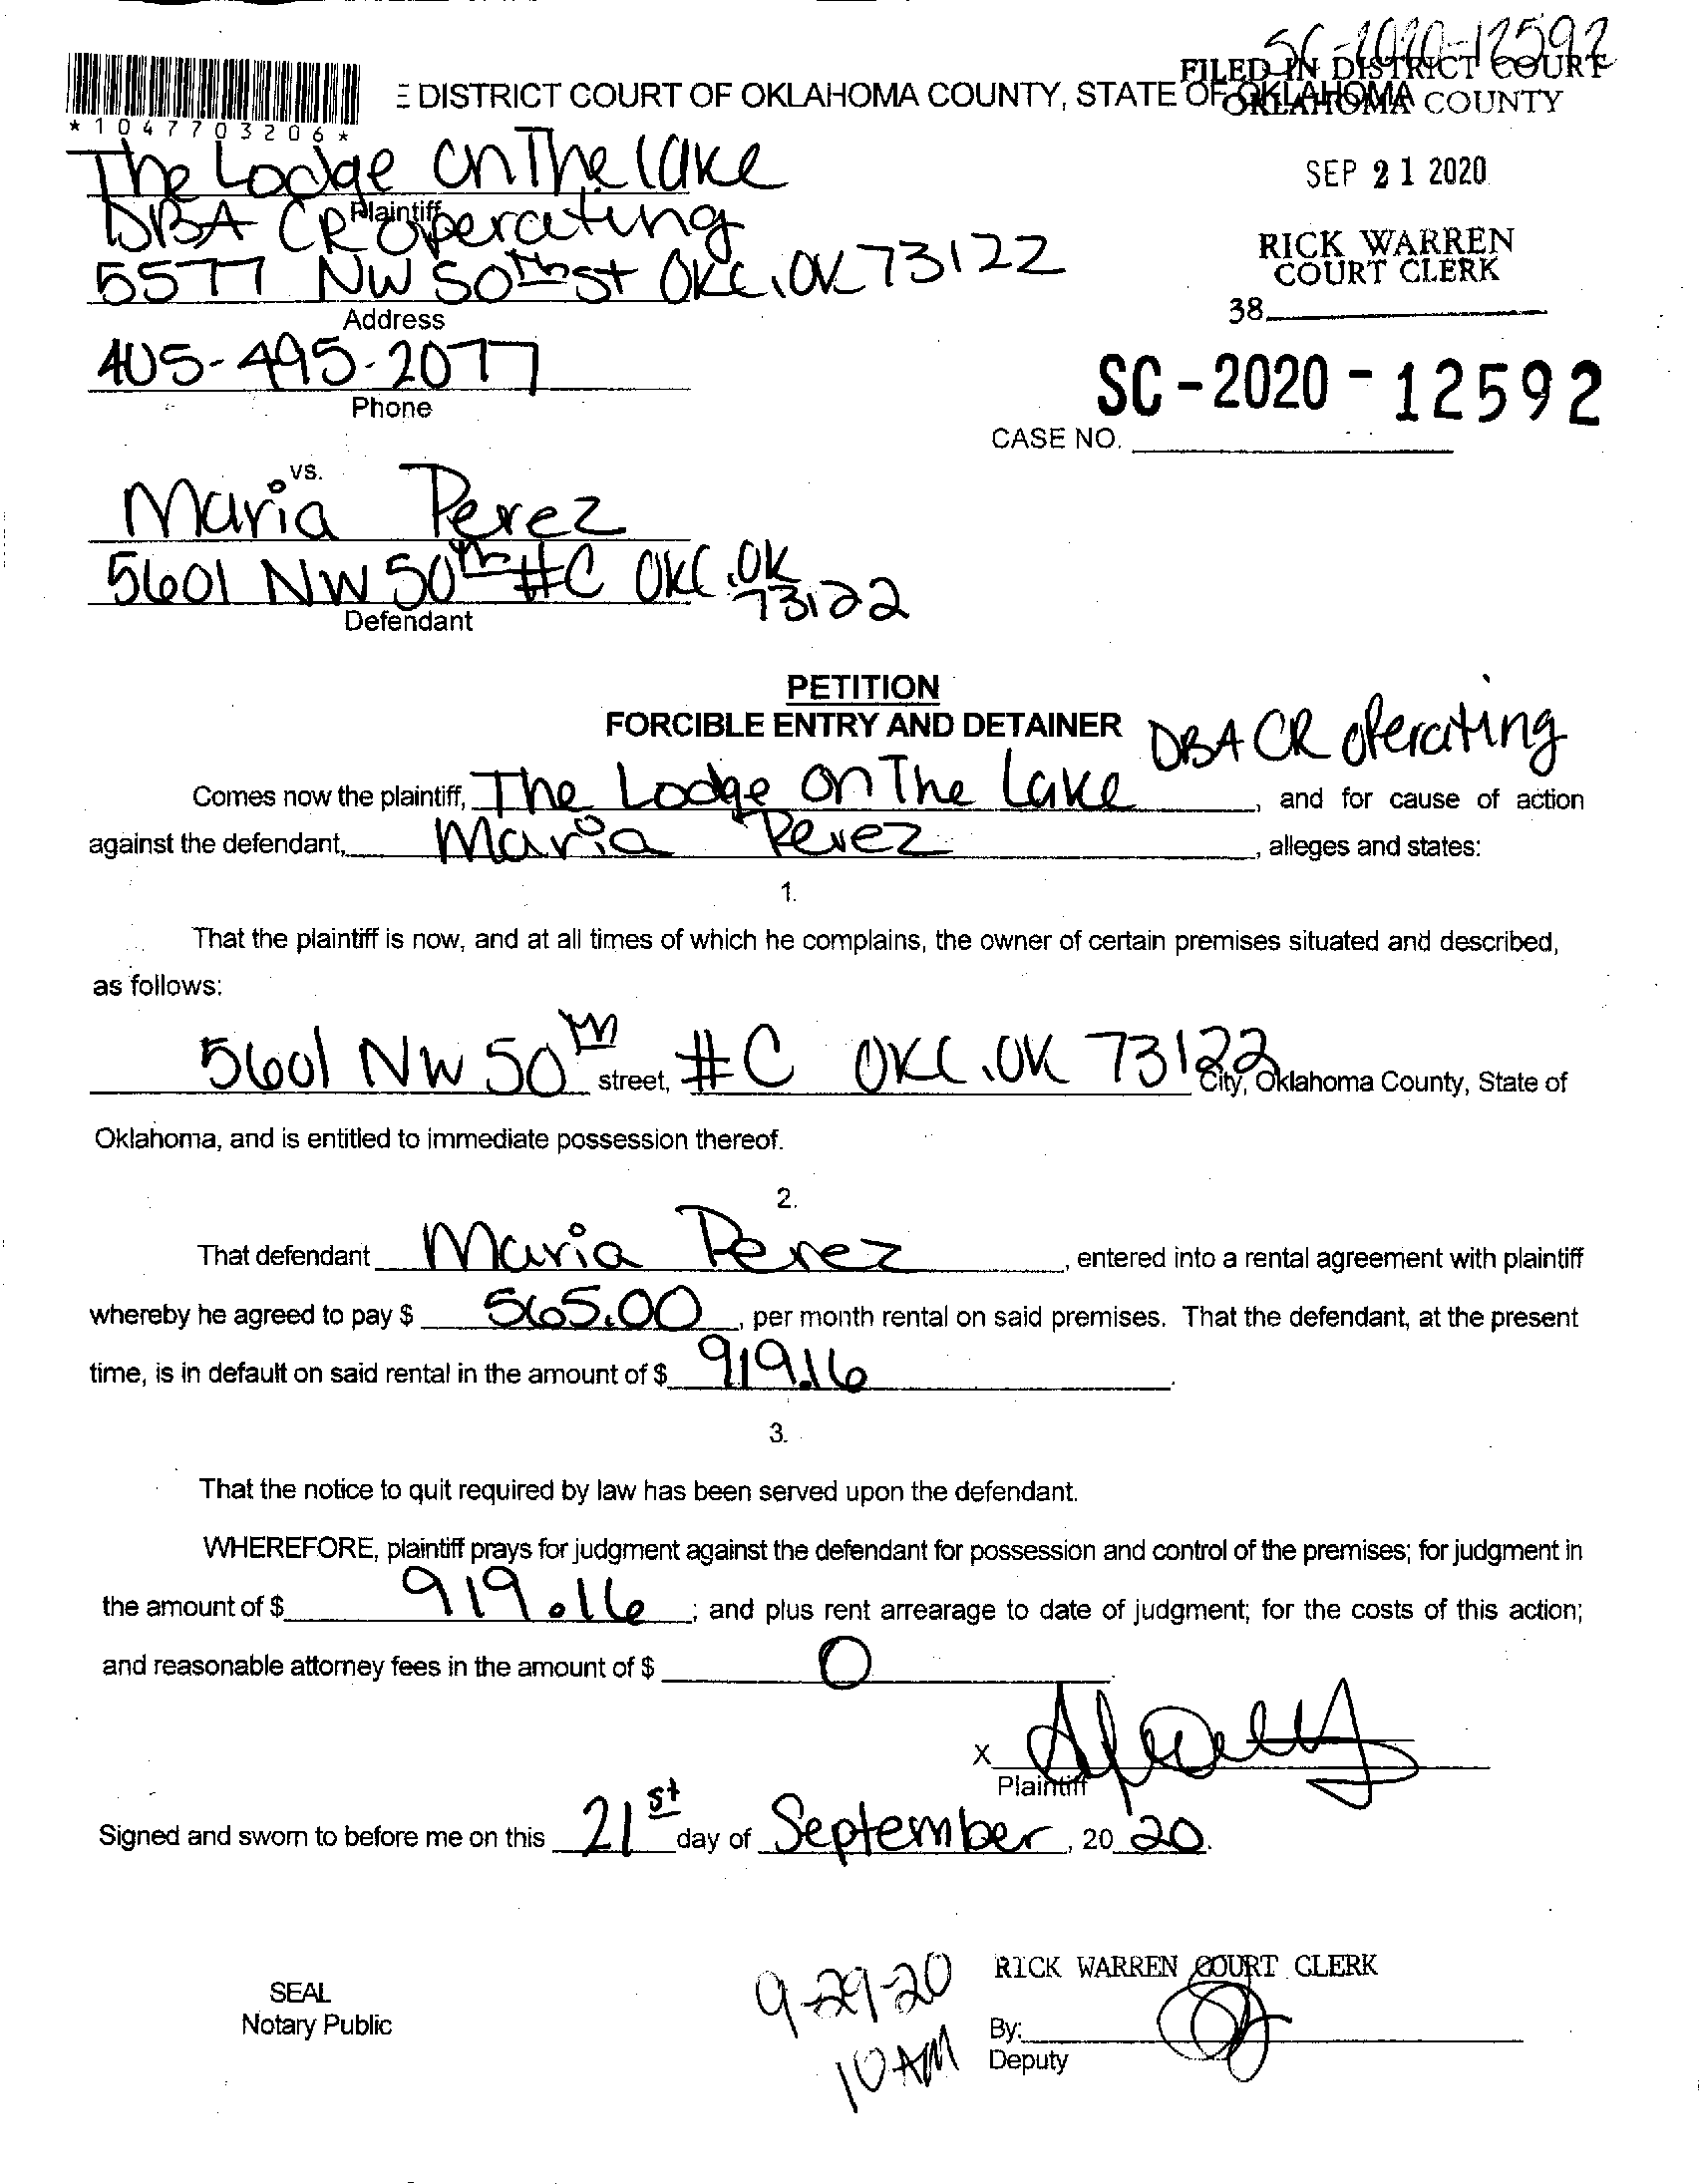 SC-2020-12592
FILED IN DISTRICT COURT
DISTRICT COURT OF OKLAHOMA COUNTY, STATE OF OKLAHOMA COUNTY
*1047703206*
The Lodge On The lake
SEP 21 2020
Plaintiff
DBA CR Operating
RICK WARREN
COURT CLERK
5577 NW 50th St OKC, OK 73122
38
Address
405-495-2077
Phone
SC-2020-12592
CASE NO.
vs.
Maria Perez
5601 NW 50th #C OKC, OK
73122
Defendant
PETITION
FORCIBLE ENTRY AND DETAINER
DBA CR Operating
Comes now the plaintiff, The Lodge On The Lake, and for cause of action
against the defendant, Maria Perez, alleges and states:
1.
That the plaintiff is now, and at all times of which he complains, the owner of certain premises situated and described,
as follows:
5601 NW 50th street, #C OKC, OK 73122 City, Oklahoma County, State of
Oklahoma, and is entitled to immediate possession thereof.
2.
That defendant Maria Perez, entered into a rental agreement with plaintiff
whereby he agreed to pay $ 565.00, per month rental on said premises. That the defendant, at the present
time, is in default on said rental in the amount of $ 919.16.
3.
That the notice to quit required by law has been served upon the defendant.
WHEREFORE, plaintiff prays for judgment against the defendant for possession and control of the premises; for judgment in
the amount of $ 919.16; and plus rent arrearage to date of judgment; for the costs of this action;
and reasonable attorney fees in the amount of $ 0.
X
Plaintiff
Signed and sworn to before me on this 21st day of September, 20 20.
9-29-20
10 AM
RICK WARREN COURT CLERK
SEAL
Notary Public
By:
Deputy